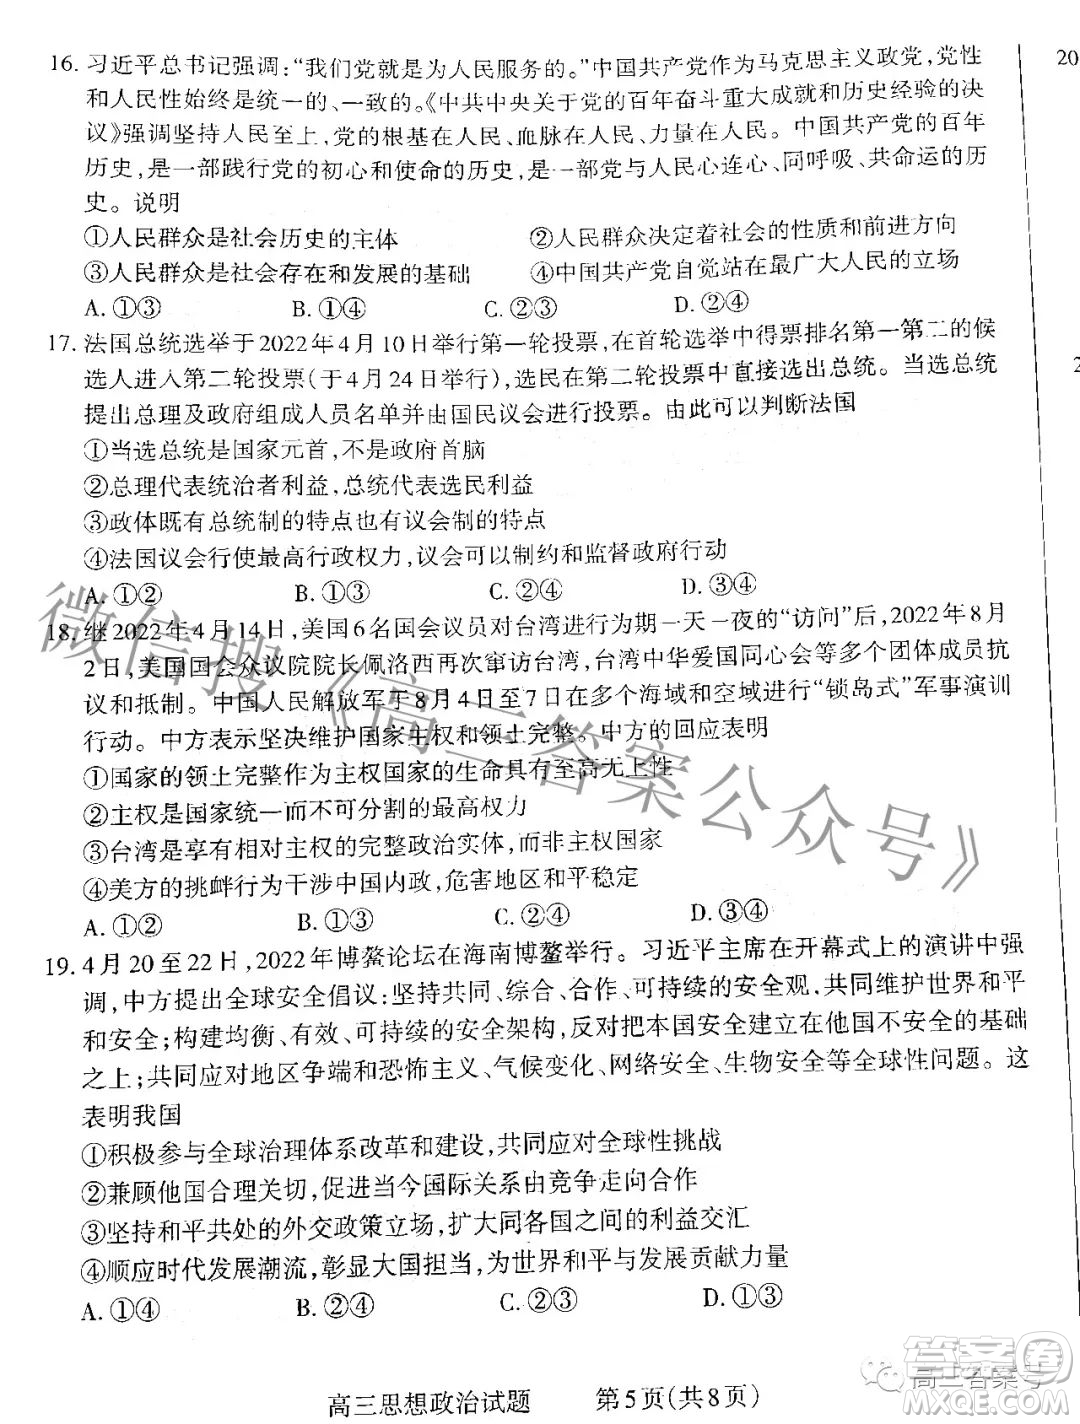 16. 习近平总书记强调:“我们党就是为人民服务的。”中国共产党作为马克思主义政党,党性
和人民性始终是统一的、一致的。《中共中央关于党的百年奋斗重大成就和历史经验的决
议》强调坚持人民至上,党的根基在人民、血脉在人民、力量在人民。中国共产党的百年
历史,是一部践行党的初心和使命的历史,是一部党与人民心连心、同呼吸、共命运的历
史。说明
①人民群众是社会历史的主体 ②人民群众决定着社会的性质和前进方向
③人民群众是社会存在和发展的基础 ④中国共产党自觉站在最广大人民的立场
A. ①③ B. ①④ C. ②③ D. ②④
17. 法国总统选举于2022年4月10日举行第一轮投票,在首轮选举中得票排名第一第二的候
选人进入第二轮投票(于4月24日举行),选民在第二轮投票中直接选出总统。当选总统
提出总理及政府组成人员名单并由国民议会进行投票。由此可以判断法国
①当选总统是国家元首,不是政府首脑
②总理代表统治者利益,总统代表选民利益
③政体既有总统制的特点也有议会制的特点
④法国议会行使最高行政权力,议会可以制约和监督政府行动
A. ①② B. ①③ C. ②④ D. ③④
18. 继2022年4月14日,美国6名国会议员对台湾进行为期一天一夜的“访问”后,2022年8月
2日,美国国会众议院院长佩洛西再次窜访台湾,台湾中华爱国同心会等多个团体成员抗
议和抵制。中国人民解放军于8月4日至7日在多个海域和空域进行“锁岛式”军事演训
行动。中方表示坚决维护国家主权和领土完整。中方的回应表明
①国家的领土完整作为主权国家的生命具有至高无上性
②主权是国家统一而不可分割的最高权力
③台湾是享有相对主权的完整政治实体,而非主权国家
④美方的挑衅行为干涉中国内政,危害地区和平稳定
A. ①② B. ①③ C. ②④ D. ③④
19. 4月20至22日,2022年博鳌论坛在海南博鳌举行。习近平主席在开幕式上的演讲中强
调,中方提出全球安全倡议:坚持共同、综合、合作、可持续的安全观,共同维护世界和平
和安全;构建均衡、有效、可持续的安全架构,反对把本国安全建立在他国不安全的基础
之上;共同应对地区争端和恐怖主义、气候变化、网络安全、生物安全等全球性问题。这
表明我国
①积极参与全球治理体系改革和建设,共同应对全球性挑战
②兼顾他国合理关切,促进当今国际关系由竞争走向合作
③坚持和平共处的外交政策立场,扩大同各国之间的利益交汇
④顺应时代发展潮流,彰显大国担当,为世界和平与发展贡献力量
A. ①④ B. ②④ C. ②③ D. ①③
高三思想政治试题 第5页(共8页)
20
2
微信搜《高三答案公众号》
高三答案号
答案圈
MXQE.COM